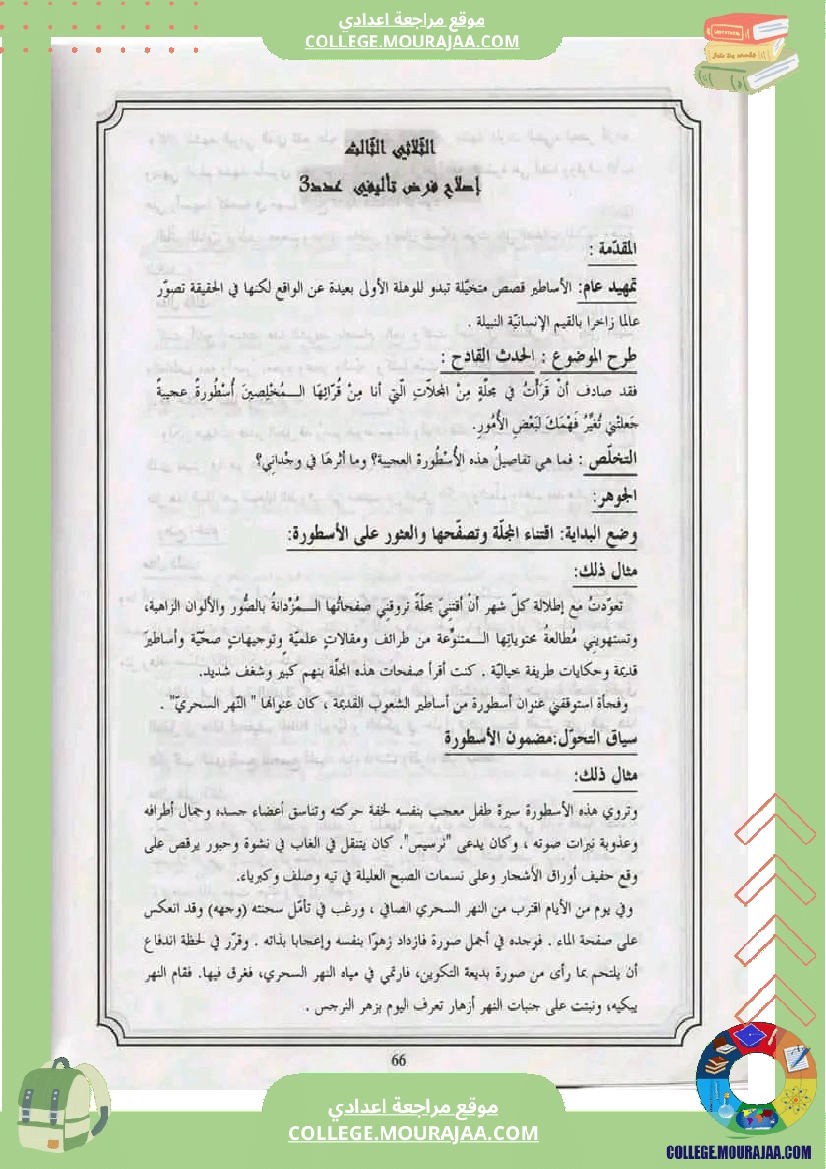 موقع مراجعة اعدادي
COLLEGE.MOURAJAA.COM
الثّلاثي الثّالث
إصلاح فرض تأليفي عدد3
المقدّمة :
تمهيد عام: الأساطير قصص متخيّلة تبدو للوهلة الأولى بعيدة عن الواقع لكنها في الحقيقة تصوّر
عالما زاخرا بالقيم الإنسانيّة النبيلة .
طرح الموضوع : الحدث القادح :
فقد صادف أنْ قَرَأْتُ في مجلّةٍ مِنْ المجلاّتِ الّتي أنا مِنْ قُرّائِهَا الـمُخْلِصِينَ أُسْطُورةً عجيبةً
جَعلتْني تُغيِّرُ فَهْمَكَ لبَعْضِ الأُمُورِ.
التخلّص : فما هي تفاصيلُ هذه الأُسْطُورة العجيبة؟ وما أثرهَا في وِجْدانِي؟
الجوهر:
وضع البداية: اقتناء المجلّة وتصفّحها والعثور على الأسطورة:
مثال ذلك:
تعوّدتُ مع إطلالة كلّ شهر أنْ أقتنِيَ مجلّةً تروقنِي صفحاتُها الـمُزْدانةُ بالصُّور والألوان الزاهية،
وتستهويني مُطالعةُ محتوياتِها الـمتنوّعة من طرائف ومقالاتٍ علميّةٍ وتوجيهاتٍ صحّيّة وأساطيرَ
قديمة وحكايات طريفة خياليّة . كنت أقرأ صفحات هذه المجلّة بنهم كبير وشغف شديد.
وفجأة استوقفني عنوان أسطورة من أساطير الشعوب القديمة ، كان عنوانها " النّهر السحريّ" .
سياق التحوّل:مضمون الأسطورة
مثال ذلك:
وتروي هذه الأسطورة سيرة طفل معجب بنفسه لخفة حركته وتناسق أعضاء جسده وجمال أطرافه
وعذوبة نبرات صوته ، وكان يدعى "نرسيس". كان يتنقل في الغاب في نشوة وحبور يرقص على
وقع حفيف أوراق الأشجار وعلى نسمات الصبح العليلة في تيه وصلف وكبرياء.
وفي يوم من الأيام اقترب من النهر السحري الصافي ، ورغب في تأمّل سحنته (وجهه) وقد انعكس
على صفحة الماء . فوجده في أجمل صورة فازداد زهوّا بنفسه وإعجابا بذاته . وقرّر في لحظة اندفاع
أن يلتحم بما رأى من صورة بديعة التكوين، فارتمي في مياه النهر السحري، فغرق فيها. فقام النهر
يبكيه، ونبتت على جنبات النهر أزهار تعرف اليوم بزهر النرجس .
66
موقع مراجعة اعدادي
COLLEGE.MOURAJAA.COM
COLLEGE.MOURAJAA.COM